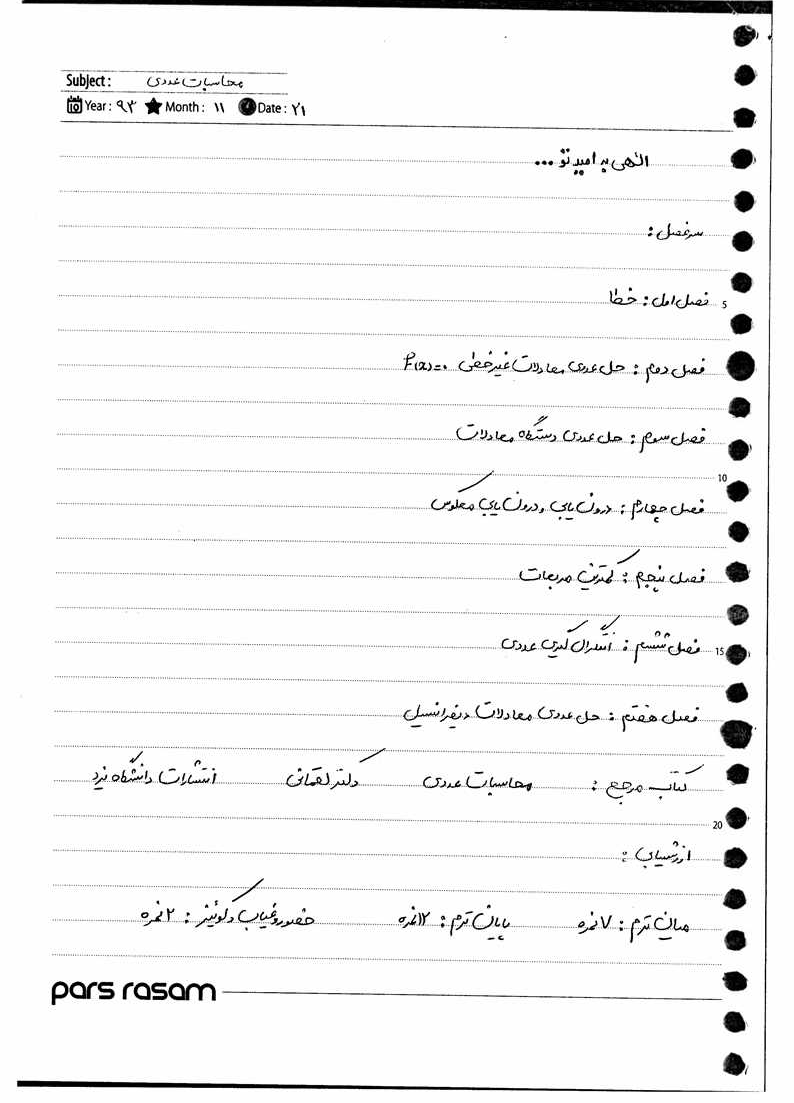 Subject: محاسبات عددی
Year: ۹۳ Month: ۱۱ Date: ۲۱
الهی به امید تو ...
سرفصل:
5 فصل اول: خطا
فصل دوم: حل عددی معادلات غیرخطی f(x)=0
فصل سوم: حل عددی دستگاه معادلات
10
فصل چهارم: درون یابی و درون یابی معکوس
فصل پنجم: کمترین مربعات
15 فصل ششم: انتگرال گیری عددی
فصل هفتم: حل عددی معادلات دیفرانسیل
کتاب مرجع: محاسبات عددی دکتر لقمانی انتشارات دانشگاه یزد
20
ارزشیابی:
میان ترم: ۷ نمره پایان ترم: ۱۲ نمره حضور و غیاب و کوئیز: ۲ نمره
pars rasam